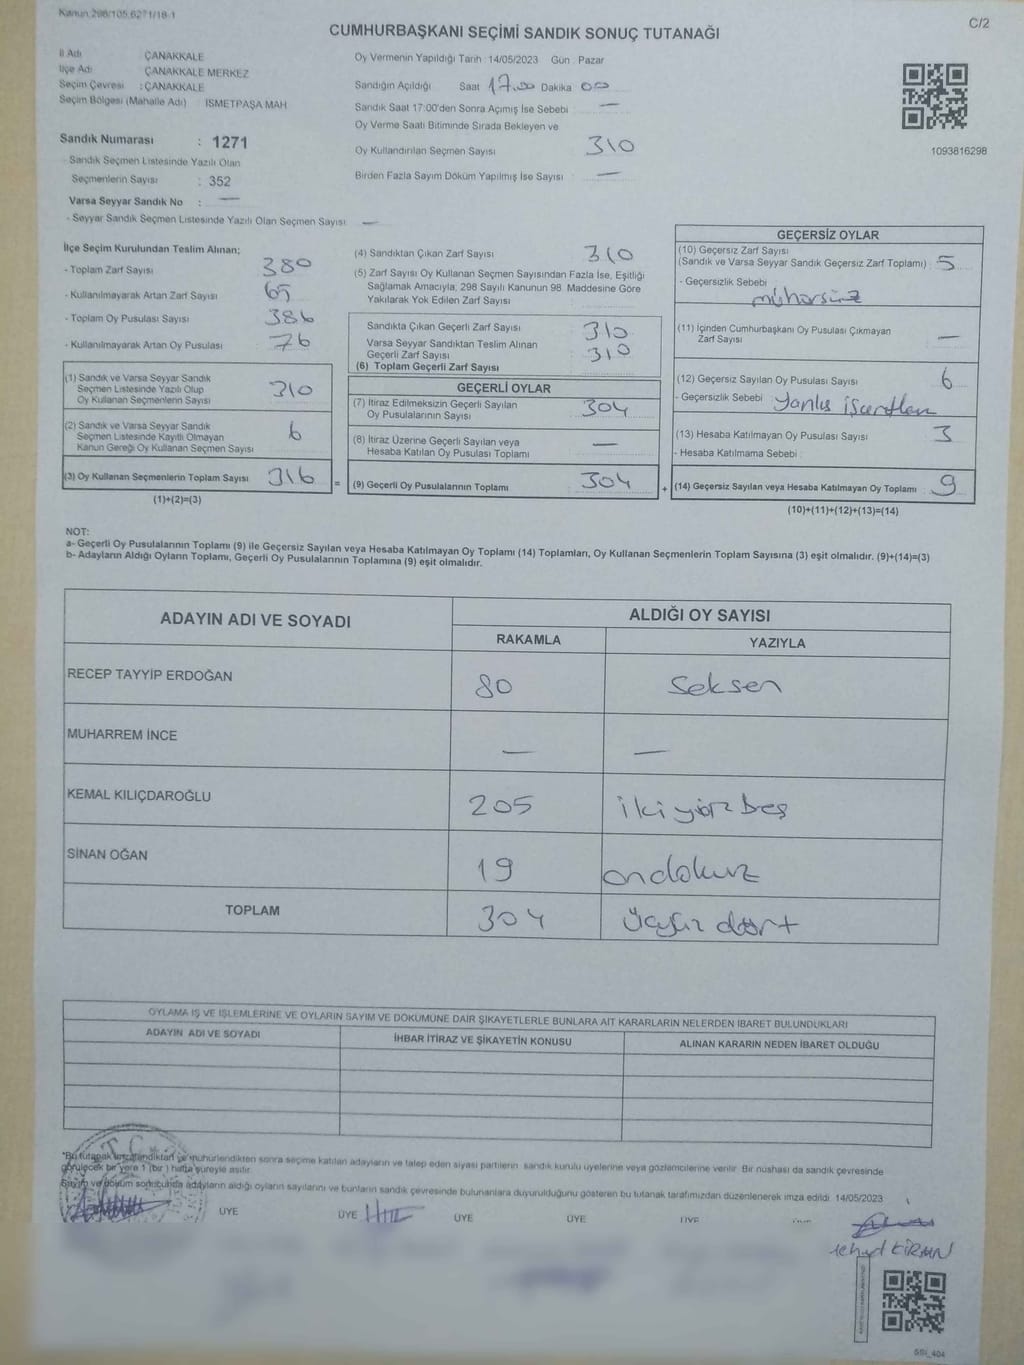 Kanun 298/105 6271/18-1
C/2
CUMHURBAŞKANI SEÇİMİ SANDIK SONUÇ TUTANAĞI
İl Adı ÇANAKKALE
İlçe Adı ÇANAKKALE MERKEZ
Seçim Çevresi : ÇANAKKALE
Seçim Bölgesi (Mahalle Adı) : İSMETPAŞA MAH
Sandık Numarası : 1271
- Sandık Seçmen Listesinde Yazılı Olan
Seçmenlerin Sayısı : 352
Varsa Seyyar Sandık No : —
- Seyyar Sandık Seçmen Listesinde Yazılı Olan Seçmen Sayısı —
Oy Vermenin Yapıldığı Tarih : 14/05/2023 Gün : Pazar
Sandığın Açıldığı Saat 17.00 Dakika 00
Sandık Saat 17:00'den Sonra Açımış İse Sebebi —
Oy Verme Saati Bitiminde Sırada Bekleyen ve
Oy Kullandırılan Seçmen Sayısı 310
Birden Fazla Sayım Döküm Yapılmış İse Sayısı : —
1093816298
İlçe Seçim Kurulundan Teslim Alınan;
- Toplam Zarf Sayısı 380
- Kullanılmayarak Artan Zarf Sayısı 65
- Toplam Oy Pusulası Sayısı 386
- Kullanılmayarak Artan Oy Pusulası 76
(1) Sandık ve Varsa Seyyar Sandık
Seçmen Listesinde Yazılı Olup
Oy Kullanan Seçmenlerin Sayısı 310
(2) Sandık ve Varsa Seyyar Sandık
Seçmen Listesinde Kayıtlı Olmayan
Kanun Gereği Oy Kullanan Seçmen Sayısı 6
(3) Oy Kullanan Seçmenlerin Toplam Sayısı 316
(1)+(2)=(3)
=
(4) Sandıktan Çıkan Zarf Sayısı 310
(5) Zarf Sayısı Oy Kullanan Seçmen Sayısından Fazla İse, Eşitliği
Sağlamak Amacıyla, 298 Sayılı Kanunun 98. Maddesine Göre
Yakılarak Yok Edilen Zarf Sayısı
Sandıkta Çıkan Geçerli Zarf Sayısı 310
Varsa Seyyar Sandıktan Teslim Alınan
Geçerli Zarf Sayısı 310
(6) Toplam Geçerli Zarf Sayısı
GEÇERLİ OYLAR
(7) İtiraz Edilmeksizin Geçerli Sayılan
Oy Pusulalarının Sayısı 304
(8) İtiraz Üzerine Geçerli Sayılan veya
Hesaba Katılan Oy Pusulası Toplamı —
(9) Geçerli Oy Pusulalarının Toplamı 304
+
GEÇERSİZ OYLAR
(10) Geçersiz Zarf Sayısı
(Sandık ve Varsa Seyyar Sandık Geçersiz Zarf Toplamı) : 5
- Geçersizlik Sebebi
mühürsüz
(11) İçinden Cumhurbaşkanı Oy Pusulası Çıkmayan
Zarf Sayısı —
(12) Geçersiz Sayılan Oy Pusulası Sayısı 6
- Geçersizlik Sebebi Yanlış işaretlen
(13) Hesaba Katılmayan Oy Pusulası Sayısı 3
- Hesaba Katılmama Sebebi
(14) Geçersiz Sayılan veya Hesaba Katılmayan Oy Toplamı 9
(10)+(11)+(12)+(13)=(14)
NOT:
a- Geçerli Oy Pusulalarının Toplamı (9) ile Geçersiz Sayılan veya Hesaba Katılmayan Oy Toplamı (14) Toplamları, Oy Kullanan Seçmenlerin Toplam Sayısına (3) eşit olmalıdır. (9)+(14)=(3)
b- Adayların Aldığı Oyların Toplamı, Geçerli Oy Pusulalarının Toplamına (9) eşit olmalıdır.
ADAYIN ADI VE SOYADI
ALDIĞI OY SAYISI
RAKAMLA YAZIYLA
RECEP TAYYİP ERDOĞAN 80 Seksen
MUHARREM İNCE — —
KEMAL KILIÇDAROĞLU 205 ikiyüz beş
SİNAN OĞAN 19 ondokuz
TOPLAM 304 üçyüz dört
OYLAMA İŞ VE İŞLEMLERİNE VE OYLARIN SAYIM VE DÖKÜMÜNE DAİR ŞİKAYETLERLE BUNLARA AİT KARARLARIN NELERDEN İBARET BULUNDUKLARI
ADAYIN ADI VE SOYADI İHBAR İTİRAZ VE ŞİKAYETİN KONUSU ALINAN KARARIN NEDEN İBARET OLDUĞU
*Bu tutanak imzalandıktan ve mühürlendikten sonra seçime katılan adayların ve talep eden siyasi partilerin sandık kurulu üyelerine veya gözlemcilerine verilir. Bir nüshası da sandık çevresinde
görülecek bir yere 1 (bir) hafta süreyle asılır.
Sayım ve döküm sonucunda adayların aldığı oyların sayılarını ve bunların sandık çevresinde bulunanlara duyurulduğunu gösteren bu tutanak tarafımızdan düzenlenerek imza edildi. 14/05/2023
ÜYE ÜYE ÜYE ÜYE ÜYE
KİRAN